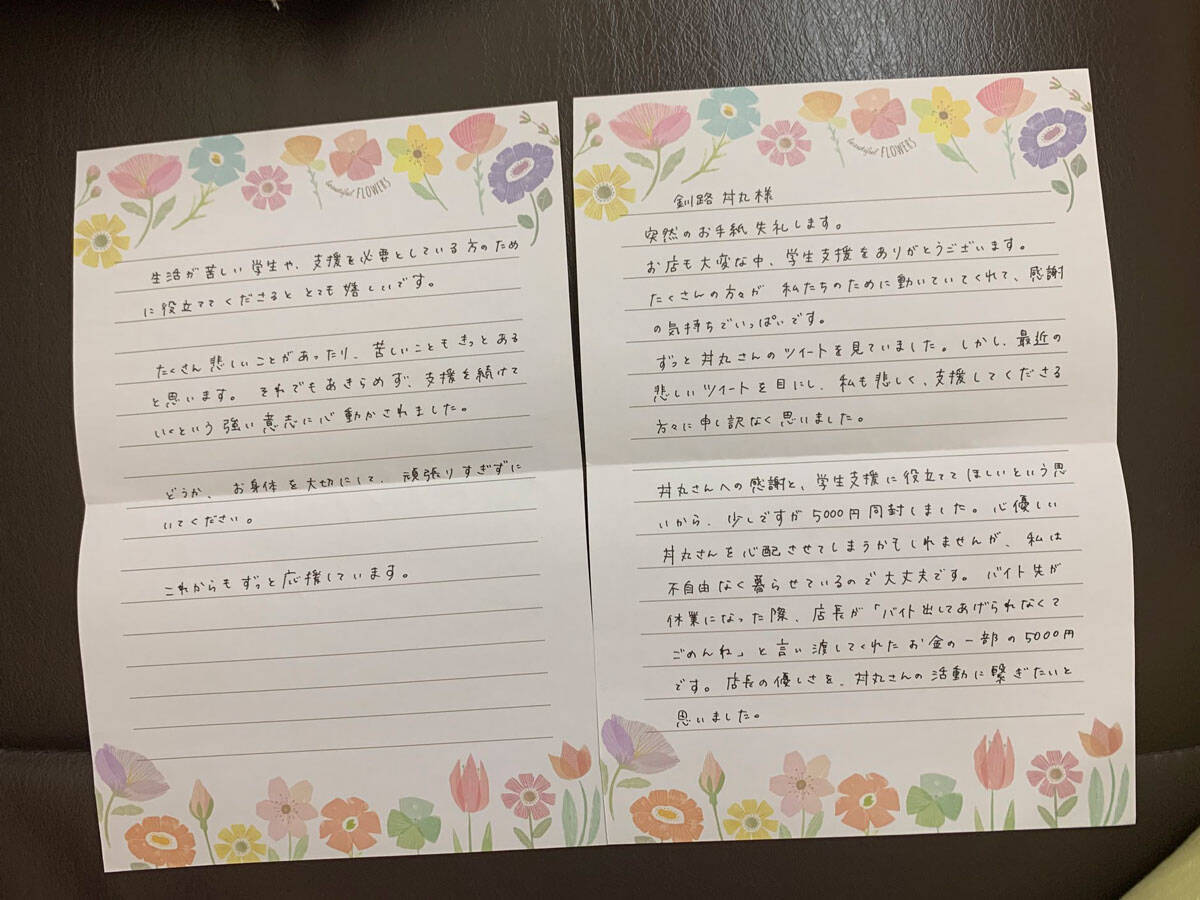 beautiful FLOWERS
釧路 丼丸様
突然のお手紙失礼します。
お店も大変な中、学生支援をありがとうございます。
たくさんの方々が 私たちのために動いていてくれて、感謝
の気持ちでいっぱいです。
ずっと丼丸さんのツイートを見ていました。しかし、最近の
悲しいツイートを目にし、私も悲しく、支援してくださる
方々に申し訳なく思いました。
丼丸さんへの感謝と、学生支援に役立ててほしいという思
いから、少しですが5000円同封しました。心優しい
丼丸さんを心配させてしまうかもしれませんが、私は
不自由なく暮らせているので大丈夫です。バイト先が
休業になった際、店長が「バイト出してあげられなくて
ごめんね」と言い渡してくれたお金の一部の5000円
です。店長の優しさを、丼丸さんの活動に繋ぎたいと
思いました。
beautiful FLOWERS
生活が苦しい学生や、支援を必要としている方のため
に役立ててくださるととても嬉しいです。
たくさん悲しいことがあったり、苦しいこともきっとある
と思います。それでもあきらめず、支援を続けて
いくという強い意志に心動かされました。
どうか、お身体を大切にして、頑張りすぎずに
いてください。
これからもずっと応援しています。